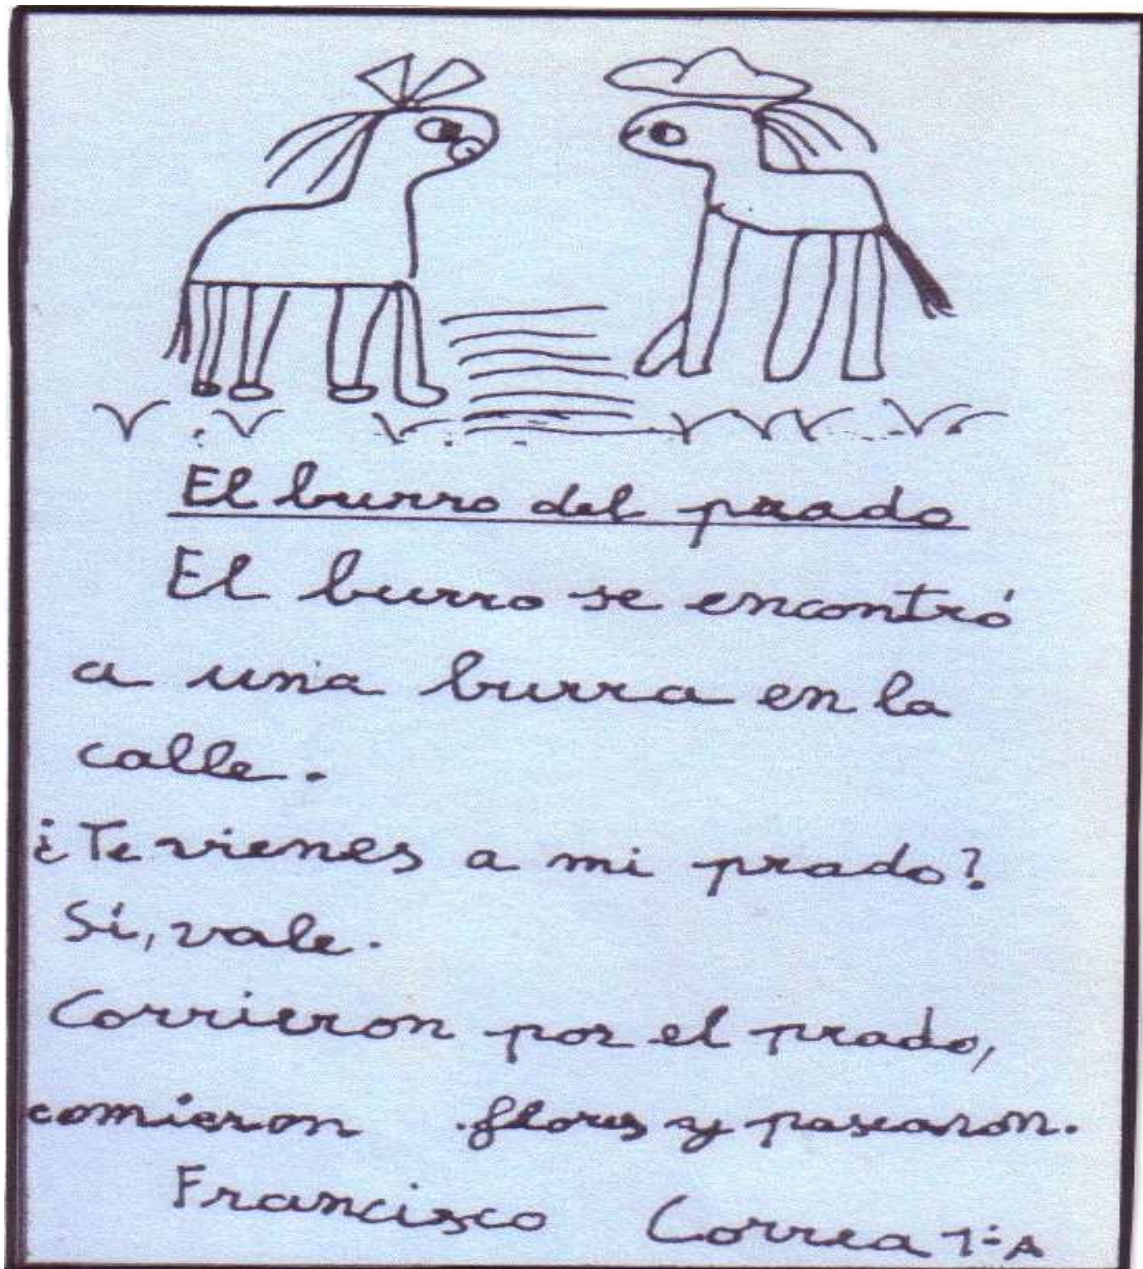 El burro del prado
El burro se encontró
a una burra en la
calle.
¿Te vienes a mi prado?
Sí, vale.
Corrieron por el prado,
comieron flores y pasearon.
Francisco Correa 1ºA